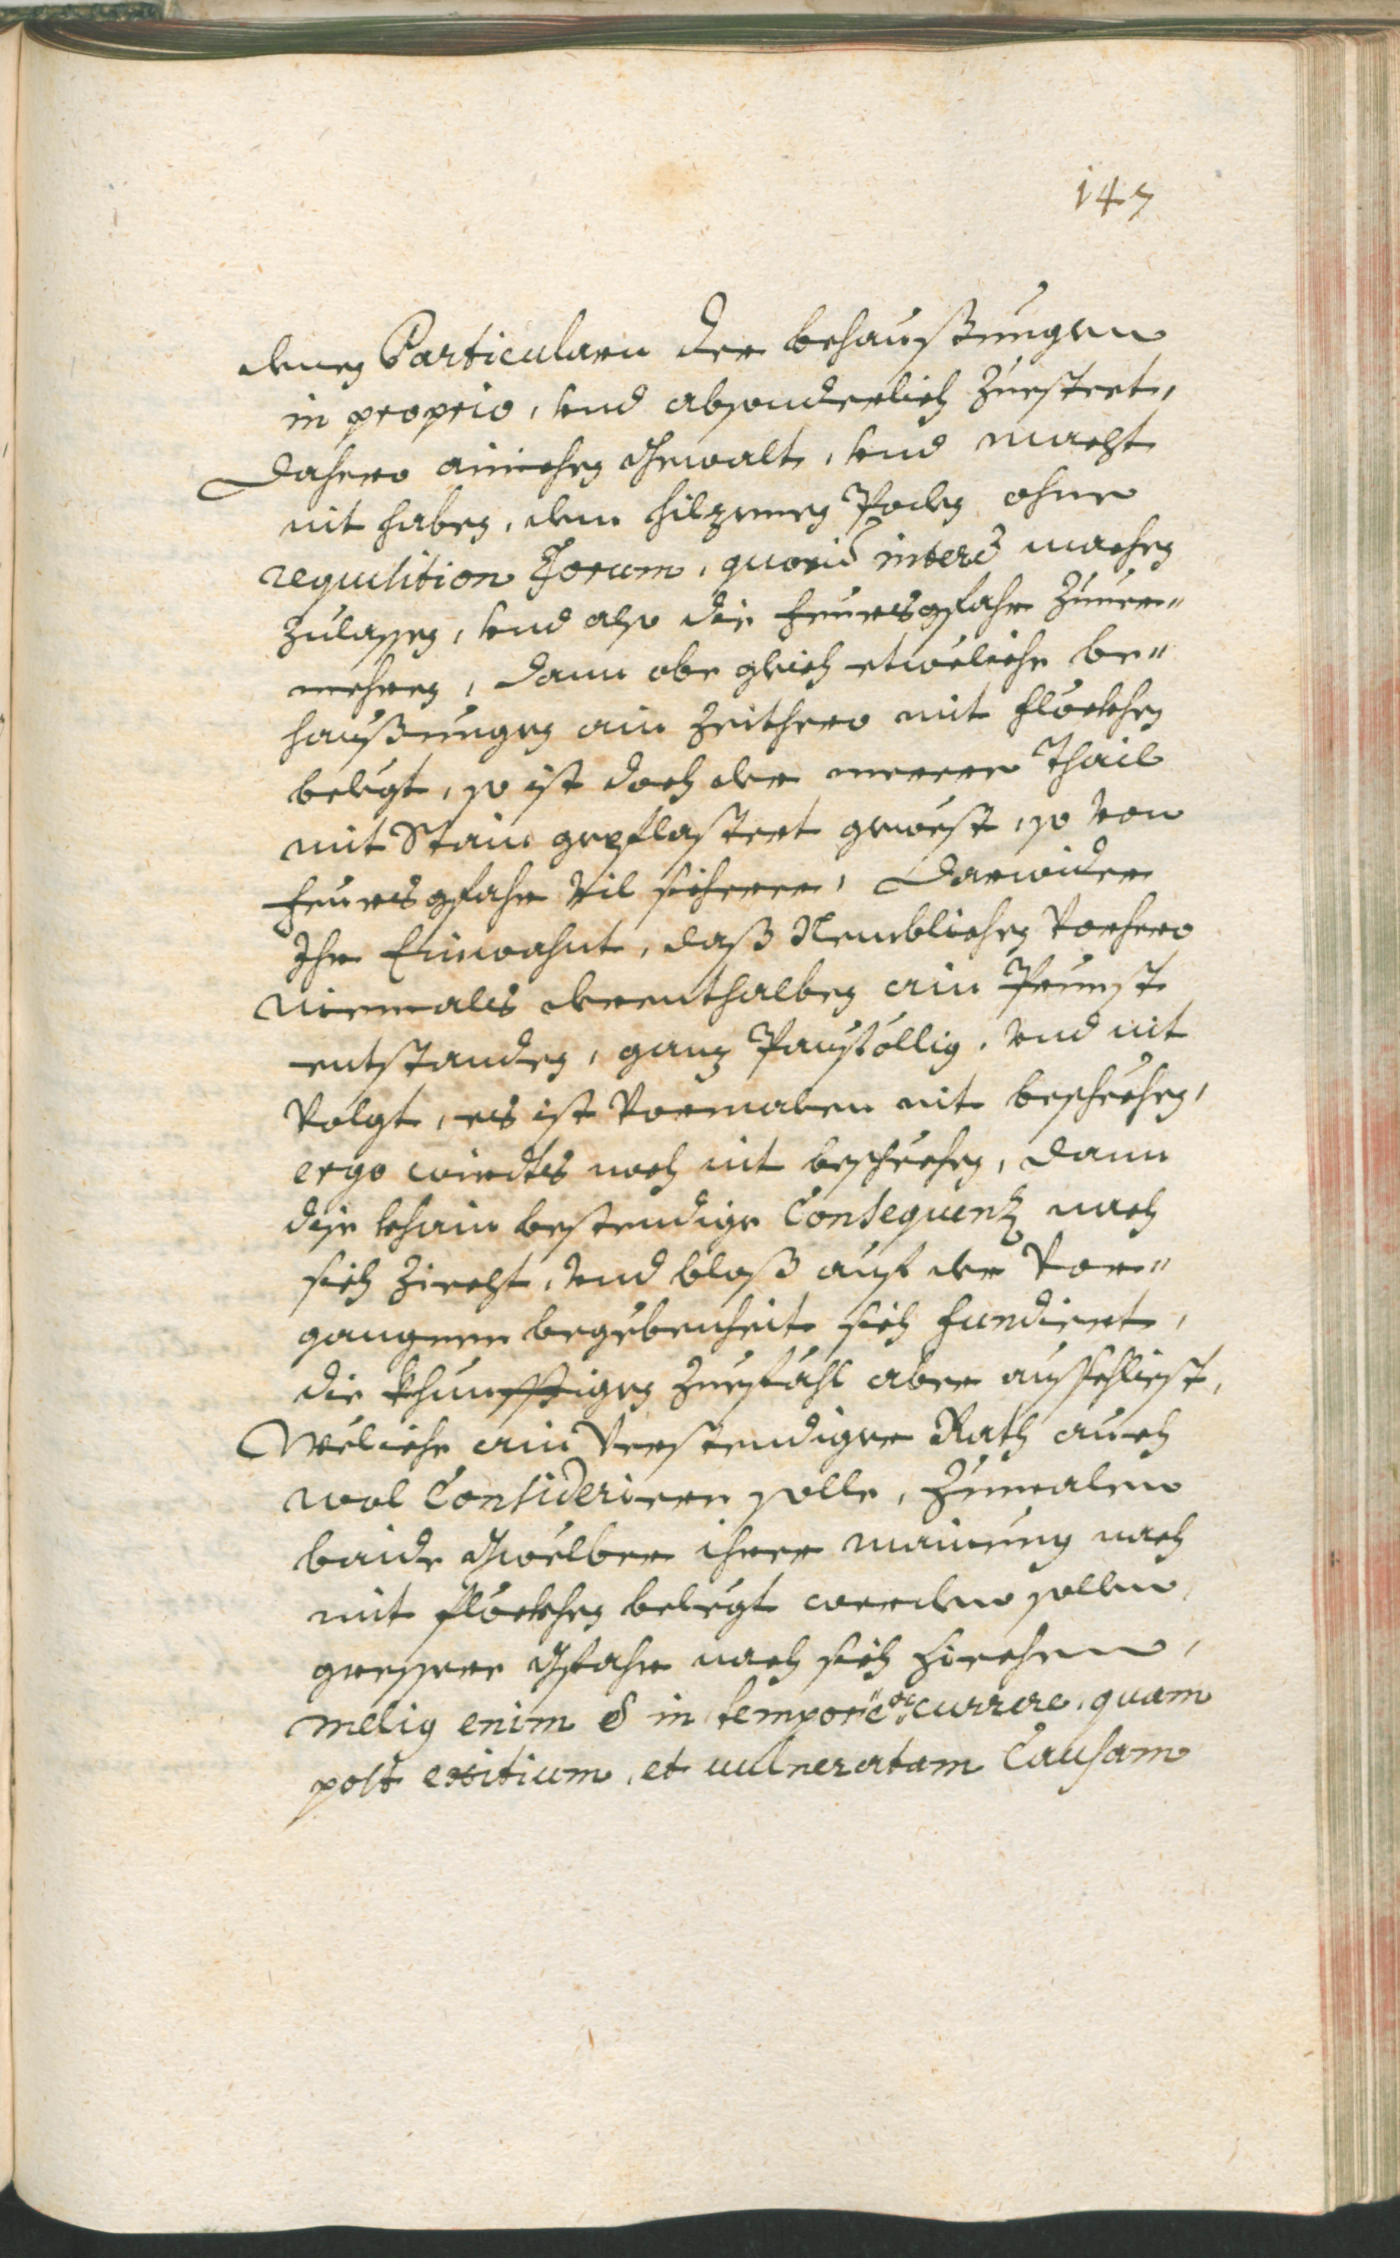 147
denen Particularn der behaußungen
in proprio, vnd absonderlich zuestret,
Dahero ainichen Gewalt, vnd macht
nit haben, den hilzenen Poden ohne
requisition Eorum, quorum interest machen
zulassen, vnd also die feursgfahr zuuer"
mehren, dann obe gleich etweliche be"
haußungen ain Zeithero mit fleckhen
belegt, so ist doch der merere Thail
mit Stain gepflastert gewest, so von
feursgfahr vil sicherer, Darwider
Ihr Einwahnt, daß Nemblichen vorhero
niemals derenthalben ain Prunst
entstanden, ganz Pauföllig, vnd nit
volgt, es ist vormalen nit beschechen,
ergo wirdts noch nit beschechen, dann
dise khain bestendige Consequenz nach
sich ziecht, vnd bloß auf der vor"
gangnen begebenheit sich fundiert,
die khunfftigen Zuefähl aber ausschliest,
Weliche ain verstendiger Rath auch
wol Considerieren solle, Zumalen
baide Gwelber ihrer mainung nach
mit fleckhen belegt werden sollen,
gressere Gfahr nach sich ziechen,
melius enim est in tempore occurrere, quam
post exitium, et uulneratam Causam